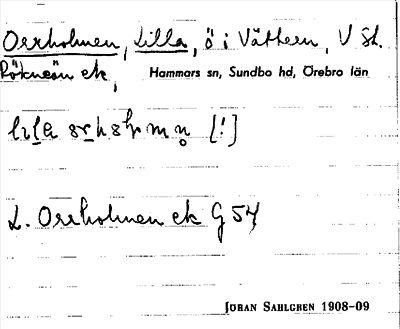 Orrholmen, Lilla, ö i Vättern, V St.
Röknöön ek, Hammars sn, Sundbo hd, Örebro län
[!]
L. Orrholmen ek G 54
JÖRAN SAHLGREN 1908-09